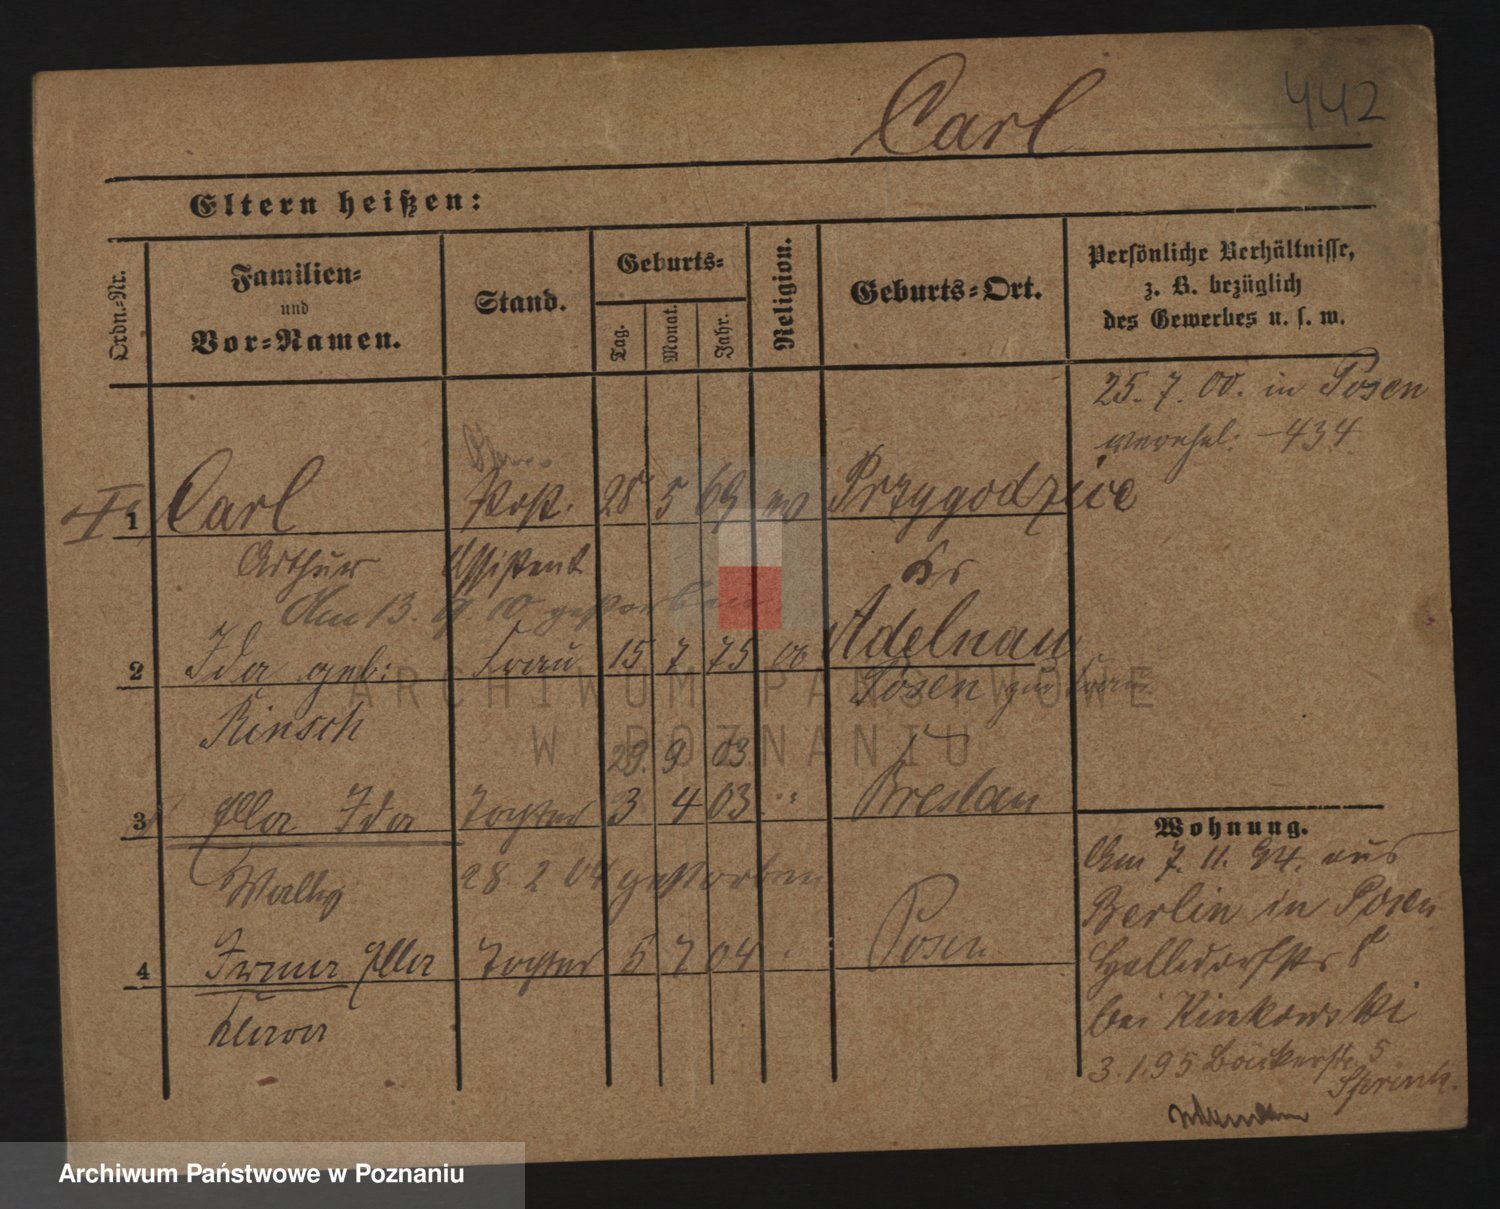 442
Carl
Eltern heißen:
Ordn.-Nr.
Familien-
und
Vor-Namen.
Stand.
Geburts-
Tag.
Monat.
Jahr.
Religion.
Geburts-Ort.
Persönliche Verhältnisse,
z. B. bezüglich
des Gewerbes u. s. w.
25. 7. 00. in Posen
verehel. 434
1 Carl Post. 28 5 69 Przygodzice
Arthur Assistent Kr
Am 13. 9. 00 gestorben Adelnau
2 Ida geb: Frau 15 7 75
Posen
Kinsch
29. 9 03
3 Ella Ida Tochter 3 4 03 " Breslau
Wally 28 2 04 gestorben
4 Irma Ella Tochter 5 7 04 Posen
Klara
Wohnung.
Am 7. 11. 94. aus
Berlin in Posen
8
bei Kinkowski
3. 1. 95 Bäckerstr. 5
ARCHIWUM PAŃSTWOWE
W POZNANIU
Archiwum Państwowe w Poznaniu